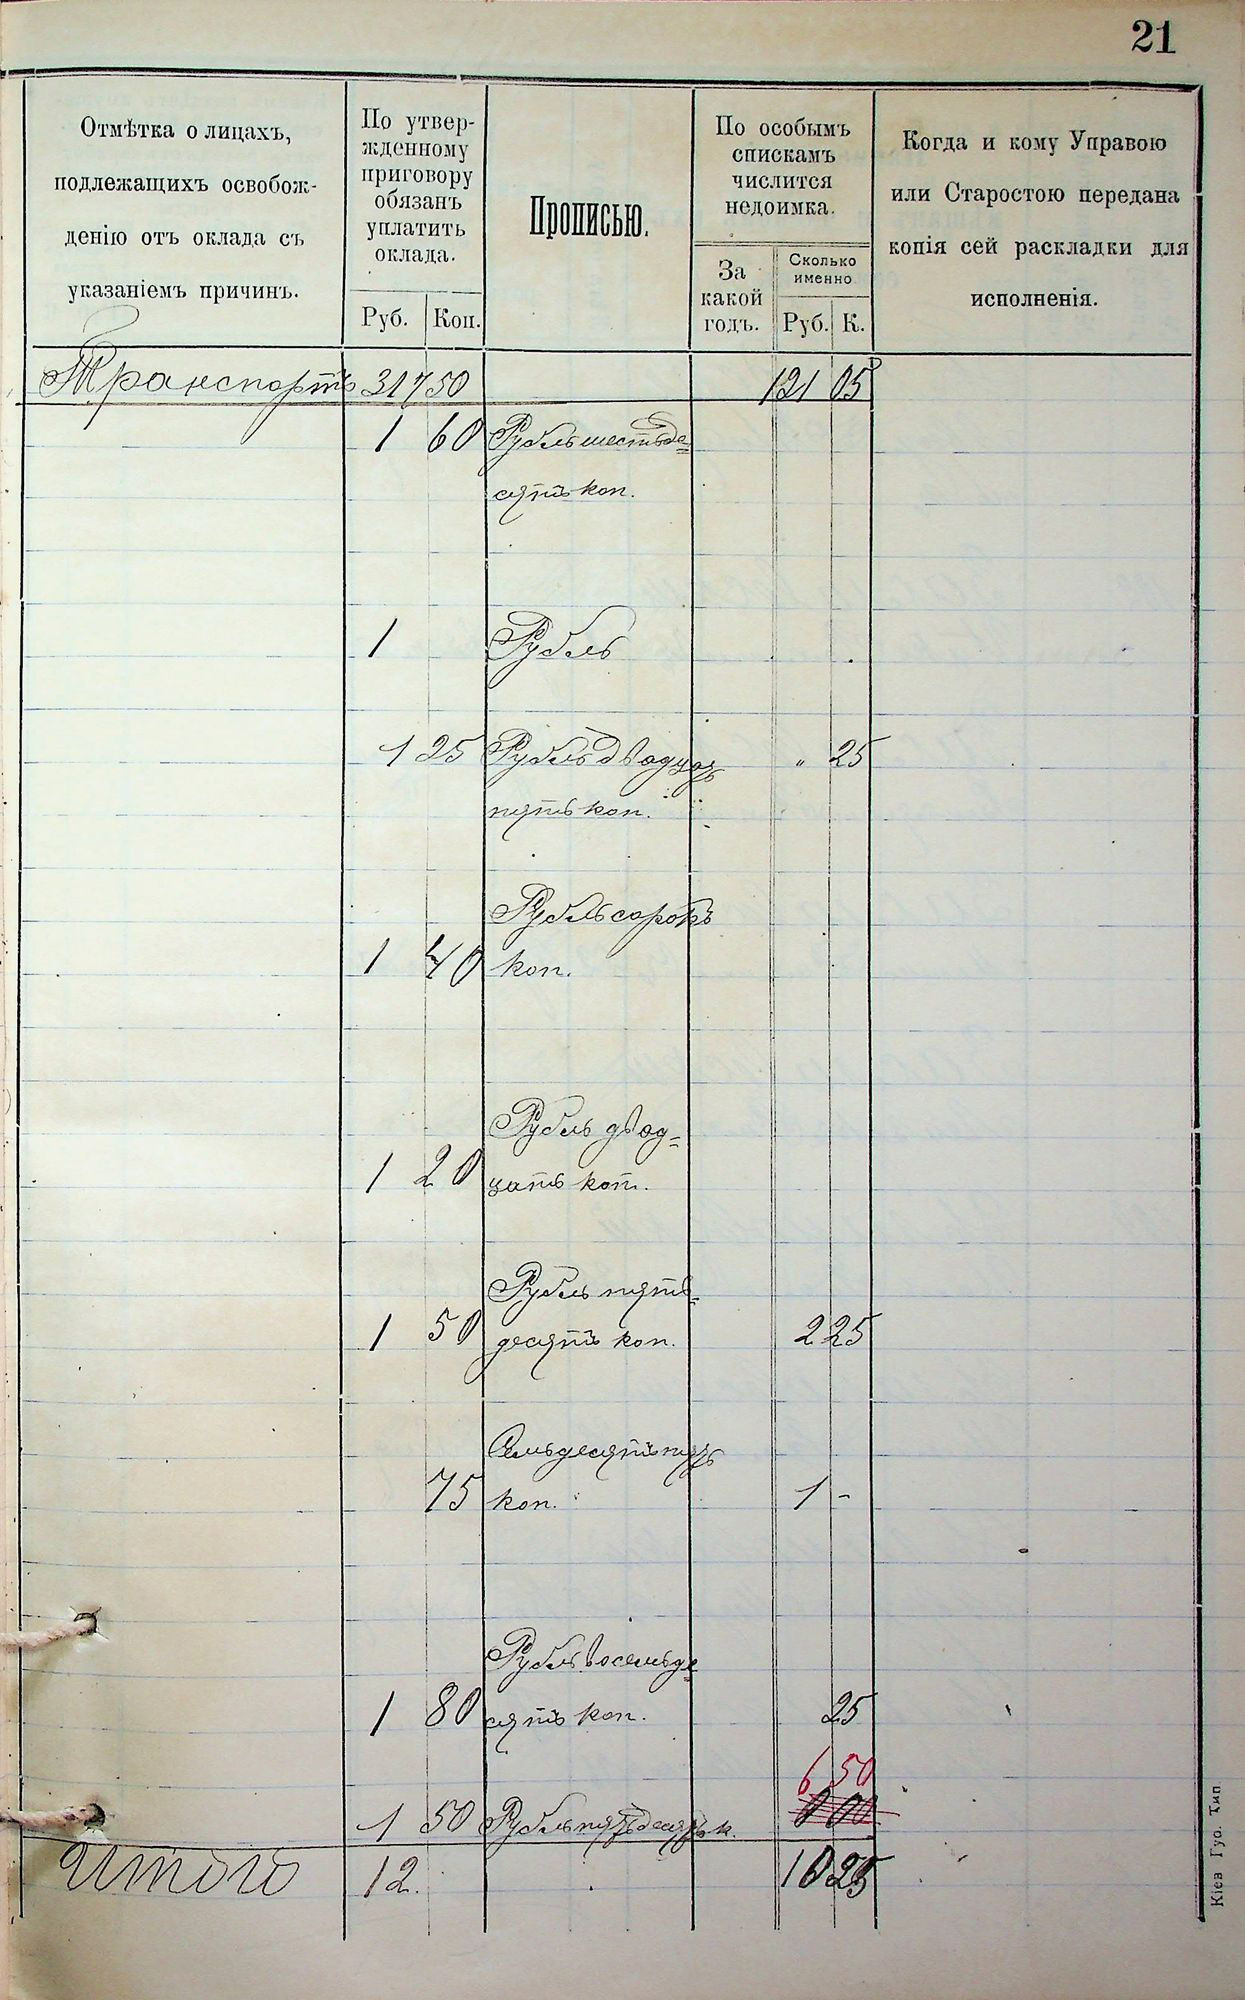 21
Отмѣтка о лицахъ,
подлежащихъ освобож-
денію отъ оклада съ
указаніемъ причинъ.
По утвер-
жденному
приговору
обязанъ
уплатить
оклада.
Руб. Коп.
Прописью.
По особымъ
спискамъ
числится
недоимка.
За
какой
годъ.
Сколько
именно
Руб. К.
Когда и кому Управою
или Старостою передана
копія сей раскладки для
исполненія.
Транспортъ 317 50 121 05
1 60 Рубль шестьде=
сятъ коп.
1 Рубль
1 25 Рубль двадцать " 25
пять коп.
Рубль сорокъ
1 40 коп.
Рубль двад=
1 20 цать коп.
Рубль пять=
1 50 десятъ коп. 2 25
Семьдесятъ пять
75 коп. 1 -
Рубль восемьде
1 80 сятъ коп. 25
6 50
1 50 Рубль пятьдесятъ к.
Итого 12. 10 25
Кіев Гуо. Тип